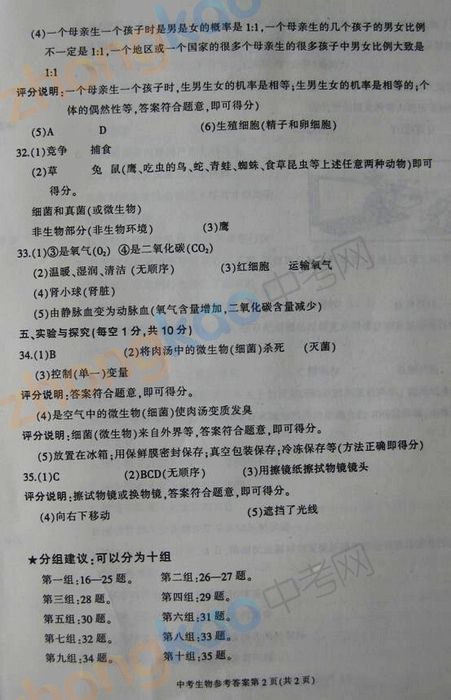 (4)一个母亲生一个孩子时是男是女的概率是1:1,一个母亲生的几个孩子的男女比例
不一定是1:1,一个地区或一个国家的很多个母亲生的很多孩子中男女比例大致是
1:1
评分说明:一个母亲生一个孩子时,生男生女的机率是相等;生男生女的机率是相等的;个
体的偶然性等,答案符合题意,即可得分)
(5)A D (6)生殖细胞(精子和卵细胞)
32.(1)竞争 捕食
(2)草 兔 鼠(鹰、吃虫的鸟、蛇、青蛙、蜘蛛、食草昆虫等上述任意两种动物)即可
得分。
细菌和真菌(或微生物)
非生物部分(非生物环境) (3)鹰
33.(1)③是氧气(O₂) ④是二氧化碳(CO₂)
(2)温暖、湿润、清洁(无顺序) (3)红细胞 运输氧气
(4)肾小球(肾脏)
(5)由静脉血变为动脉血(氧气含量增加,二氧化碳含量减少)
五、实验与探究(每空1分,共10分)
34.(1)B (2)将肉汤中的微生物(细菌)杀死 (灭菌)
(3)控制(单一)变量
评分说明:答案符合题意,即可得分。
(4)是空气中的微生物(细菌)使肉汤变质发臭
评分说明:细菌(微生物)来自外界等,答案符合题意,即可得分。
(5)放置在冰箱;用保鲜膜密封保存;真空包装保存;冷冻保存等(方法正确即得分)
35.(1)C (2)BCD(无顺序) (3)用擦镜纸擦拭物镜镜头
评分说明:擦拭物镜或换物镜,答案符合题意,即可得分。
(4)向右下移动 (5)遮挡了光线
★分组建议:可以分为十组
第一组:16—25题。 第二组:26—27题。
第三组:28题。 第四组:29题。
第五组:30题。 第六组:31题。
第七组:32题。 第八组:33题。
第九组:34题。 第十组:35题。
中考生物参考答案第2页(共2页)
zhongkao中考网
zhongkao中考网